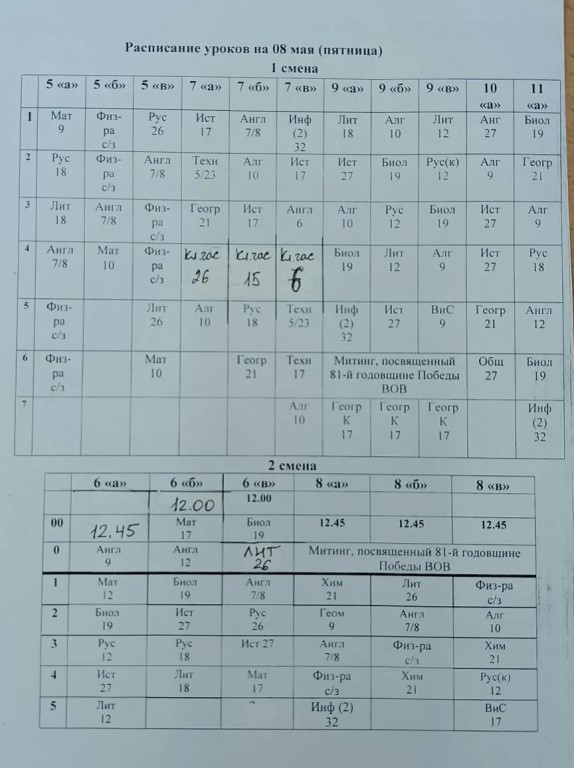 Расписание уроков на 08 мая (пятница)
1 смена
5 «а» 5 «б» 5 «в» 7 «а» 7 «б» 7 «в» 9 «а» 9 «б» 9 «в» 10 «а» 11 «а»
1 Мат 9 Физ-ра с/з Рус 26 Ист 17 Англ 7/8 Инф (2) 32 Лит 18 Алг 10 Лит 12 Анг 27 Биол 19
2 Рус 18 Физ-ра с/з Англ 7/8 Техн 5/23 Алг 10 Ист 17 Ист 27 Биол 19 Рус(к) 12 Алг 9 Геогр 21
3 Лит 18 Англ 7/8 Физ-ра с/з Геогр 21 Ист 17 Англ 6 Алг 10 Рус 12 Биол 19 Ист 27 Алг 9
4 Англ 7/8 Мат 10 Физ-ра с/з Кл час 26 Кл час 15 Кл час 6 Биол 19 Лит 12 Алг 9 Ист 27 Рус 18
5 Физ-ра с/з Лит 26 Алг 10 Рус 18 Техн 5/23 Инф (2) 32 Ист 27 ВиС 9 Геогр 21 Англ 12
6 Физ-ра с/з Мат 10 Геогр 21 Техн 17 Митинг, посвященный 81-й годовщине Победы ВОВ Общ 27 Биол 19
7 Алг 10 Геогр К 17 Геогр К 17 Геогр К 17 Инф (2) 32
2 смена
6 «а» 6 «б» 6 «в» 8 «а» 8 «б» 8 «в»
12.00 12.00
00 12.45 Мат 17 Биол 19 12.45 12.45 12.45
0 Англ 9 Англ 12 ЛИТ 26 Митинг, посвященный 81-й годовщине Победы ВОВ
1 Мат 12 Биол 19 Англ 7/8 Хим 21 Лит 26 Физ-ра с/з
2 Биол 19 Ист 27 Рус 26 Геом 9 Англ 7/8 Алг 10
3 Рус 12 Рус 18 Ист 27 Англ 7/8 Физ-ра с/з Хим 21
4 Ист 27 Лит 18 Мат 17 Физ-ра с/з Хим 21 Рус(к) 12
5 Лит 12 Инф (2) 32 ВиС 17